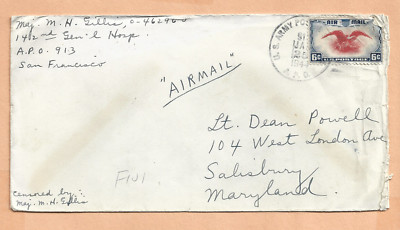 Maj. M. H. Gillis, O-46296
142nd Gen'l Hosp.
A.P.O. 913
San Francisco
U.S. ARMY POS
A.P.O.
AIR MAIL
6¢ U.S. POSTAGE 6¢
"AIRMAIL"
Lt. Dean Powell
104 West London Ave
Salisbury
Maryland.
FIJI
Censored by:
Maj. M. H. Gillis